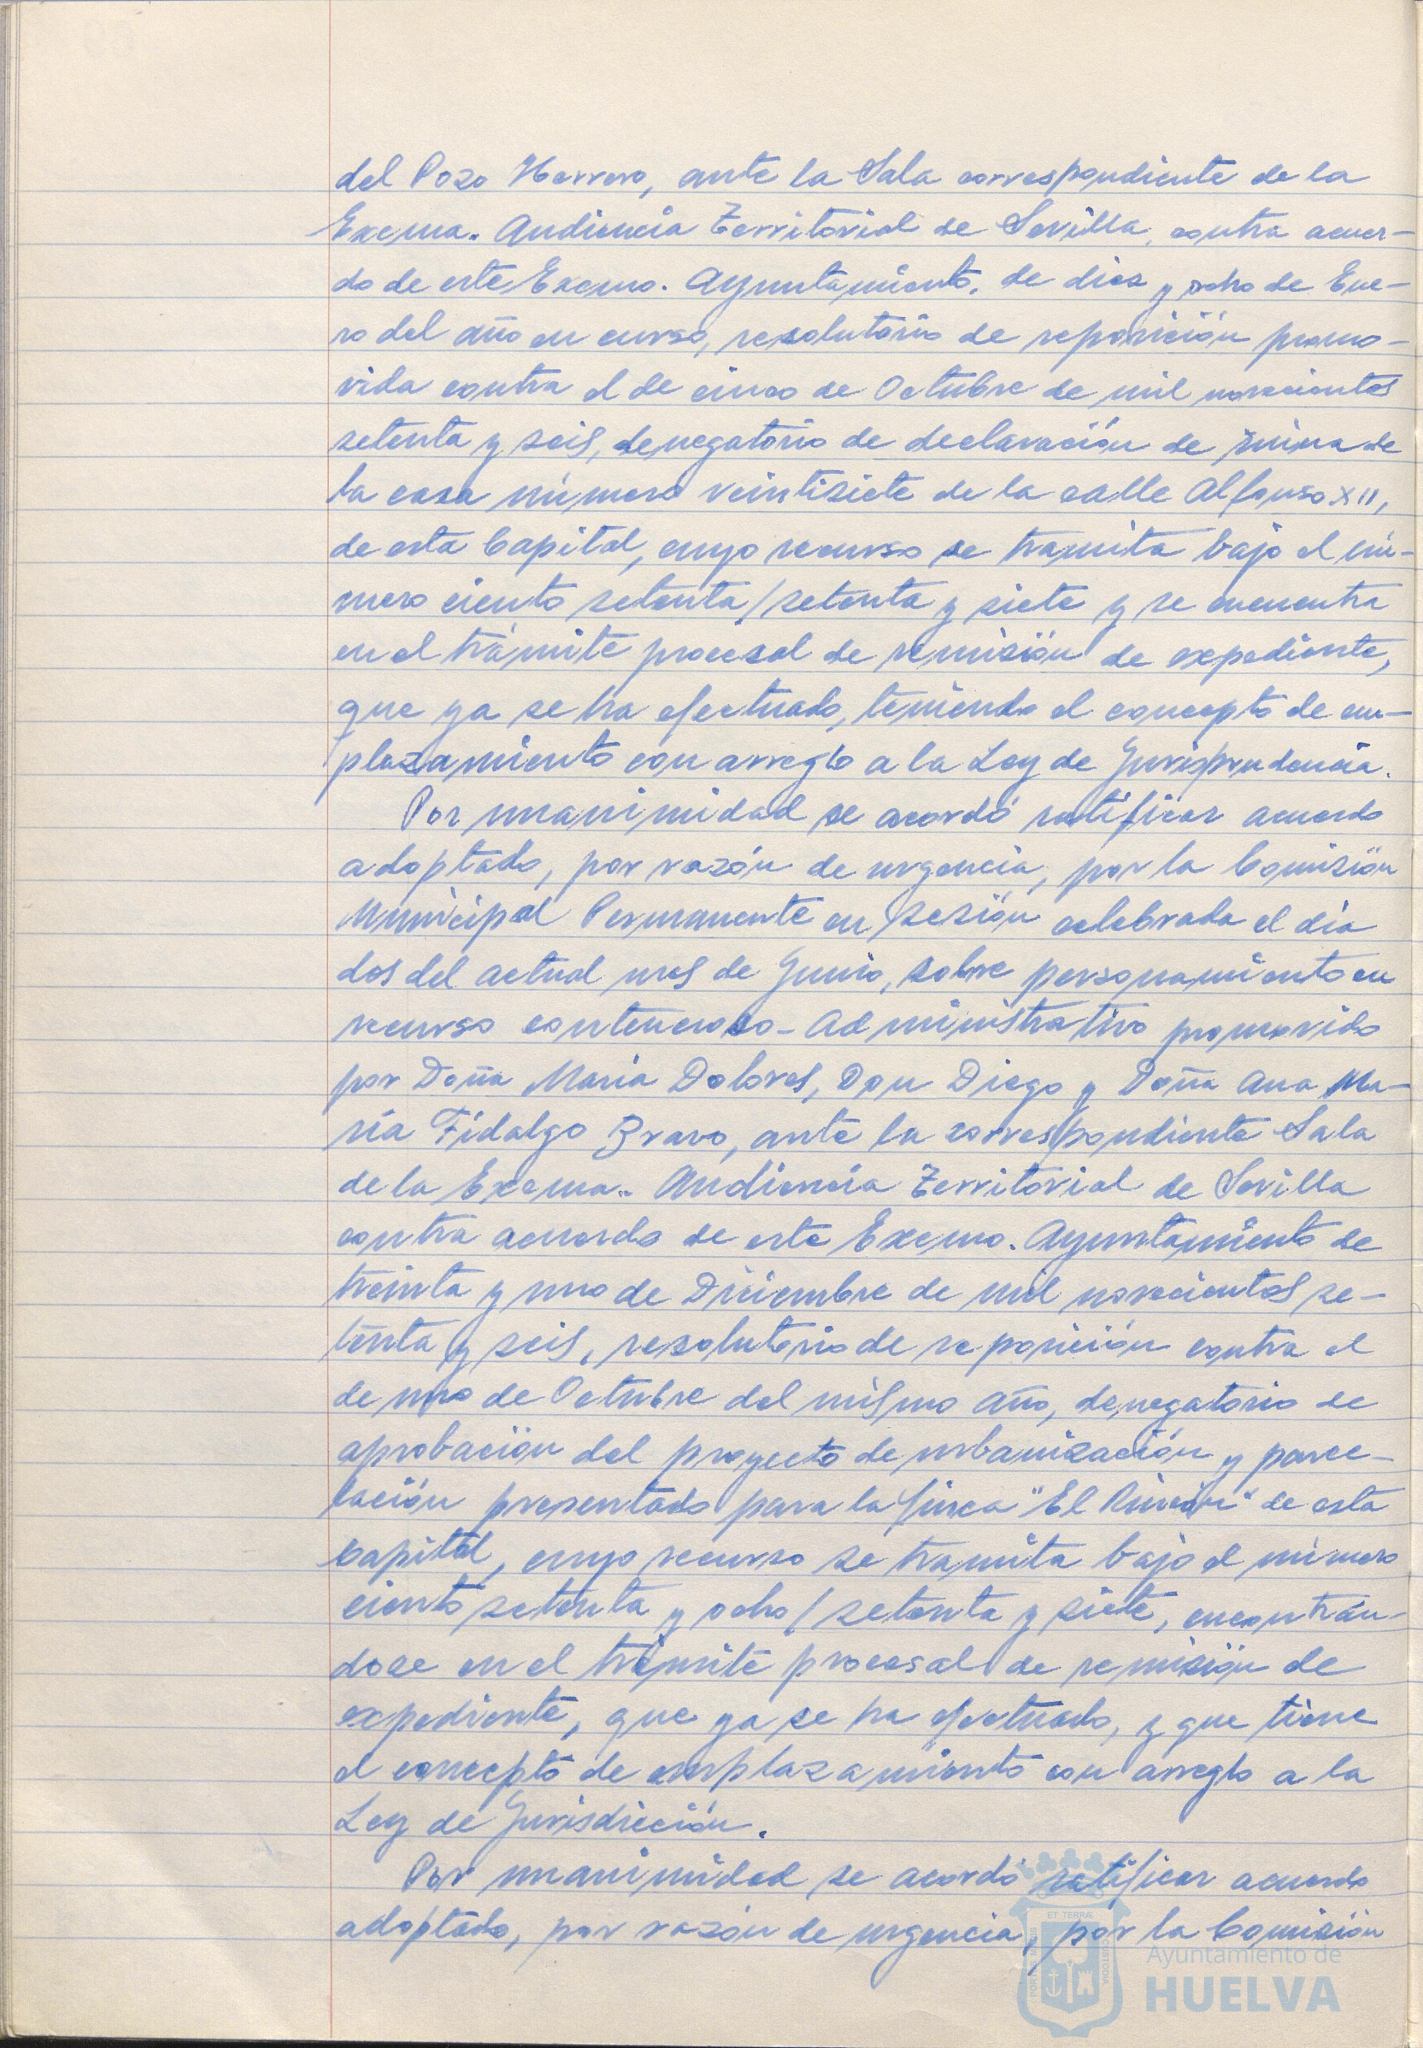 del Pozo Herrero, ante la Sala correspondiente de la
Excma. Audiencia Territorial de Sevilla, contra acuer-
do de este Excmo. Ayuntamiento, de diez y ocho de Ene-
ro del año en curso, resolutorio de reposición promo-
vida contra el de cinco de Octubre de mil novecientos
setenta y seis, denegatorio de declaración de ruina de
la casa número veintisiete de la calle Alfonso XII,
de esta Capital, cuyo recurso se tramita bajo el nú-
mero ciento setenta/setenta y siete y se encuentra
en el trámite procesal de remisión de expediente,
que ya se ha efectuado, teniendo el concepto de em-
plazamiento con arreglo a la Ley de Jurisprudencia.
Por unanimidad se acordó ratificar acuerdo
adoptado, por razón de urgencia, por la Comisión
Municipal Permanente en sesión celebrada el día
dos del actual mes de Junio, sobre personamiento en
recurso contencioso-Administrativo promovido
por Doña María Dolores, Don Diego y Doña Ana Ma-
ría Fidalgo Bravo, ante la correspondiente Sala
de la Excma. Audiencia Territorial de Sevilla
contra acuerdo de este Excmo. Ayuntamiento de
treinta y uno de Diciembre de mil novecientos se-
tenta y seis, resolutorio de reposición contra el
de uno de Octubre del mismo año, denegatorio de
aprobación del proyecto de urbanización y parce-
lación presentado para la finca "El Rincón" de esta
Capital, cuyo recurso se tramita bajo el número
ciento setenta y ocho/setenta y siete, encontrán-
dose en el trámite procesal de remisión de
expediente, que ya se ha efectuado, y que tiene
el concepto de emplazamiento con arreglo a la
Ley de Jurisdicción.
Por unanimidad se acordó ratificar acuerdo
adoptado, por razón de urgencia, por la Comisión
ET TERRÆ
PORTUS MARIS
CUSTODIA
Ayuntamiento de
HUELVA